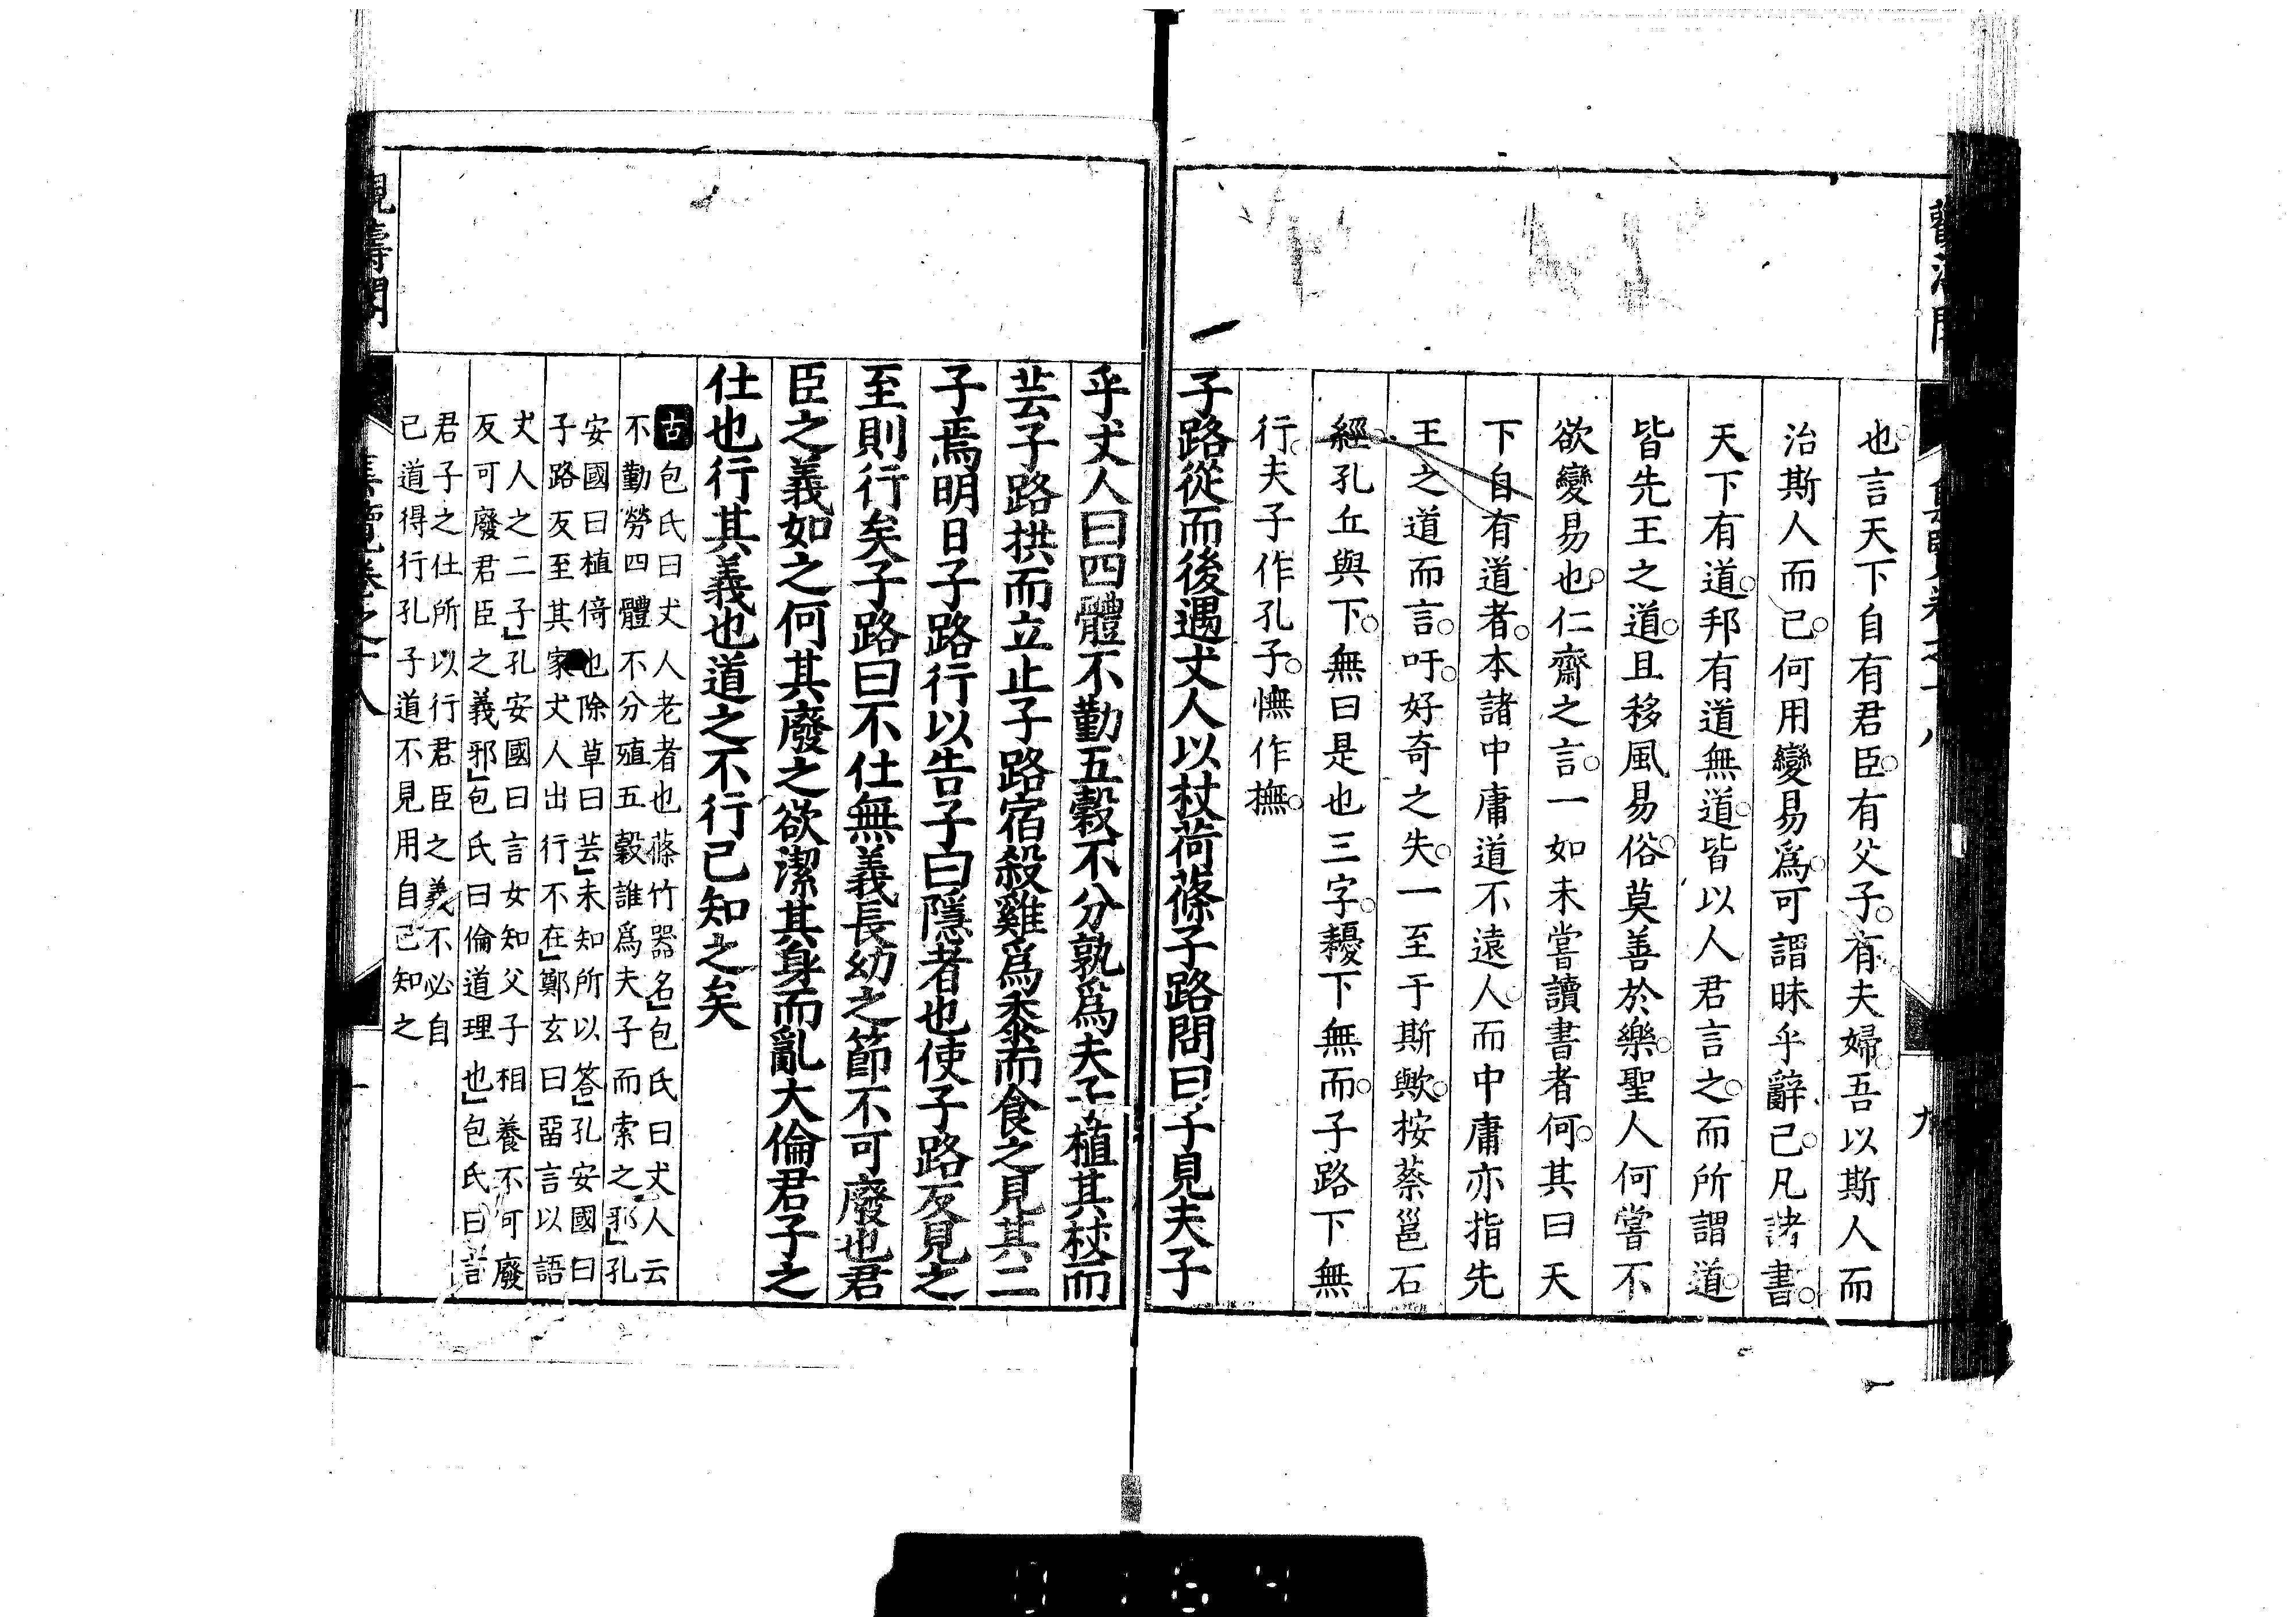 也言天下自有君臣有父子有夫婦吾以斯人而
治斯人而己何用變易爲可謂昧乎辭己凡諸書
天下有道邦有道無道皆以人君言之而所謂道
皆先王之道且移風易俗莫善於樂聖人何嘗不
欲變易也仁齋之言一如未嘗讀書者何其曰天
下自有道者本諸中庸道不遠人而中庸亦指先
王之道而言吁好奇之失一至于斯歟按蔡邕石
經孔丘與下無曰是也三字耰下無而子路下無
行夫子作孔子憮作撫
子路從而後遇丈人以杖荷蓧子路問曰子見夫子
乎丈人曰四體不勤五穀不分孰爲夫子植其杖而
芸子路拱而立止子路宿殺雞爲黍而食之見其二
子焉明日子路行以告子曰隱者也使子路反見之
至則行矣子路曰不仕無義長幼之節不可廢也君
臣之義如之何其廢之欲潔其身而亂大倫君子之
仕也行其義也道之不行己知之矣
古包氏曰丈人老者也蓧竹器名包氏曰丈人云
不勤勞四體不分殖五穀誰爲夫子而索之邪孔
安國曰植倚也除草曰芸未知所以答孔安國曰
子路反至其家丈人出行不在鄭玄曰畱言以語
丈人之二子孔安國曰言女知父子相養不可廢
反可廢君臣之義邪包氏曰倫道理也包氏曰言
君子之仕所以行君臣之義不必自
己道得行孔子道不見用自己知之